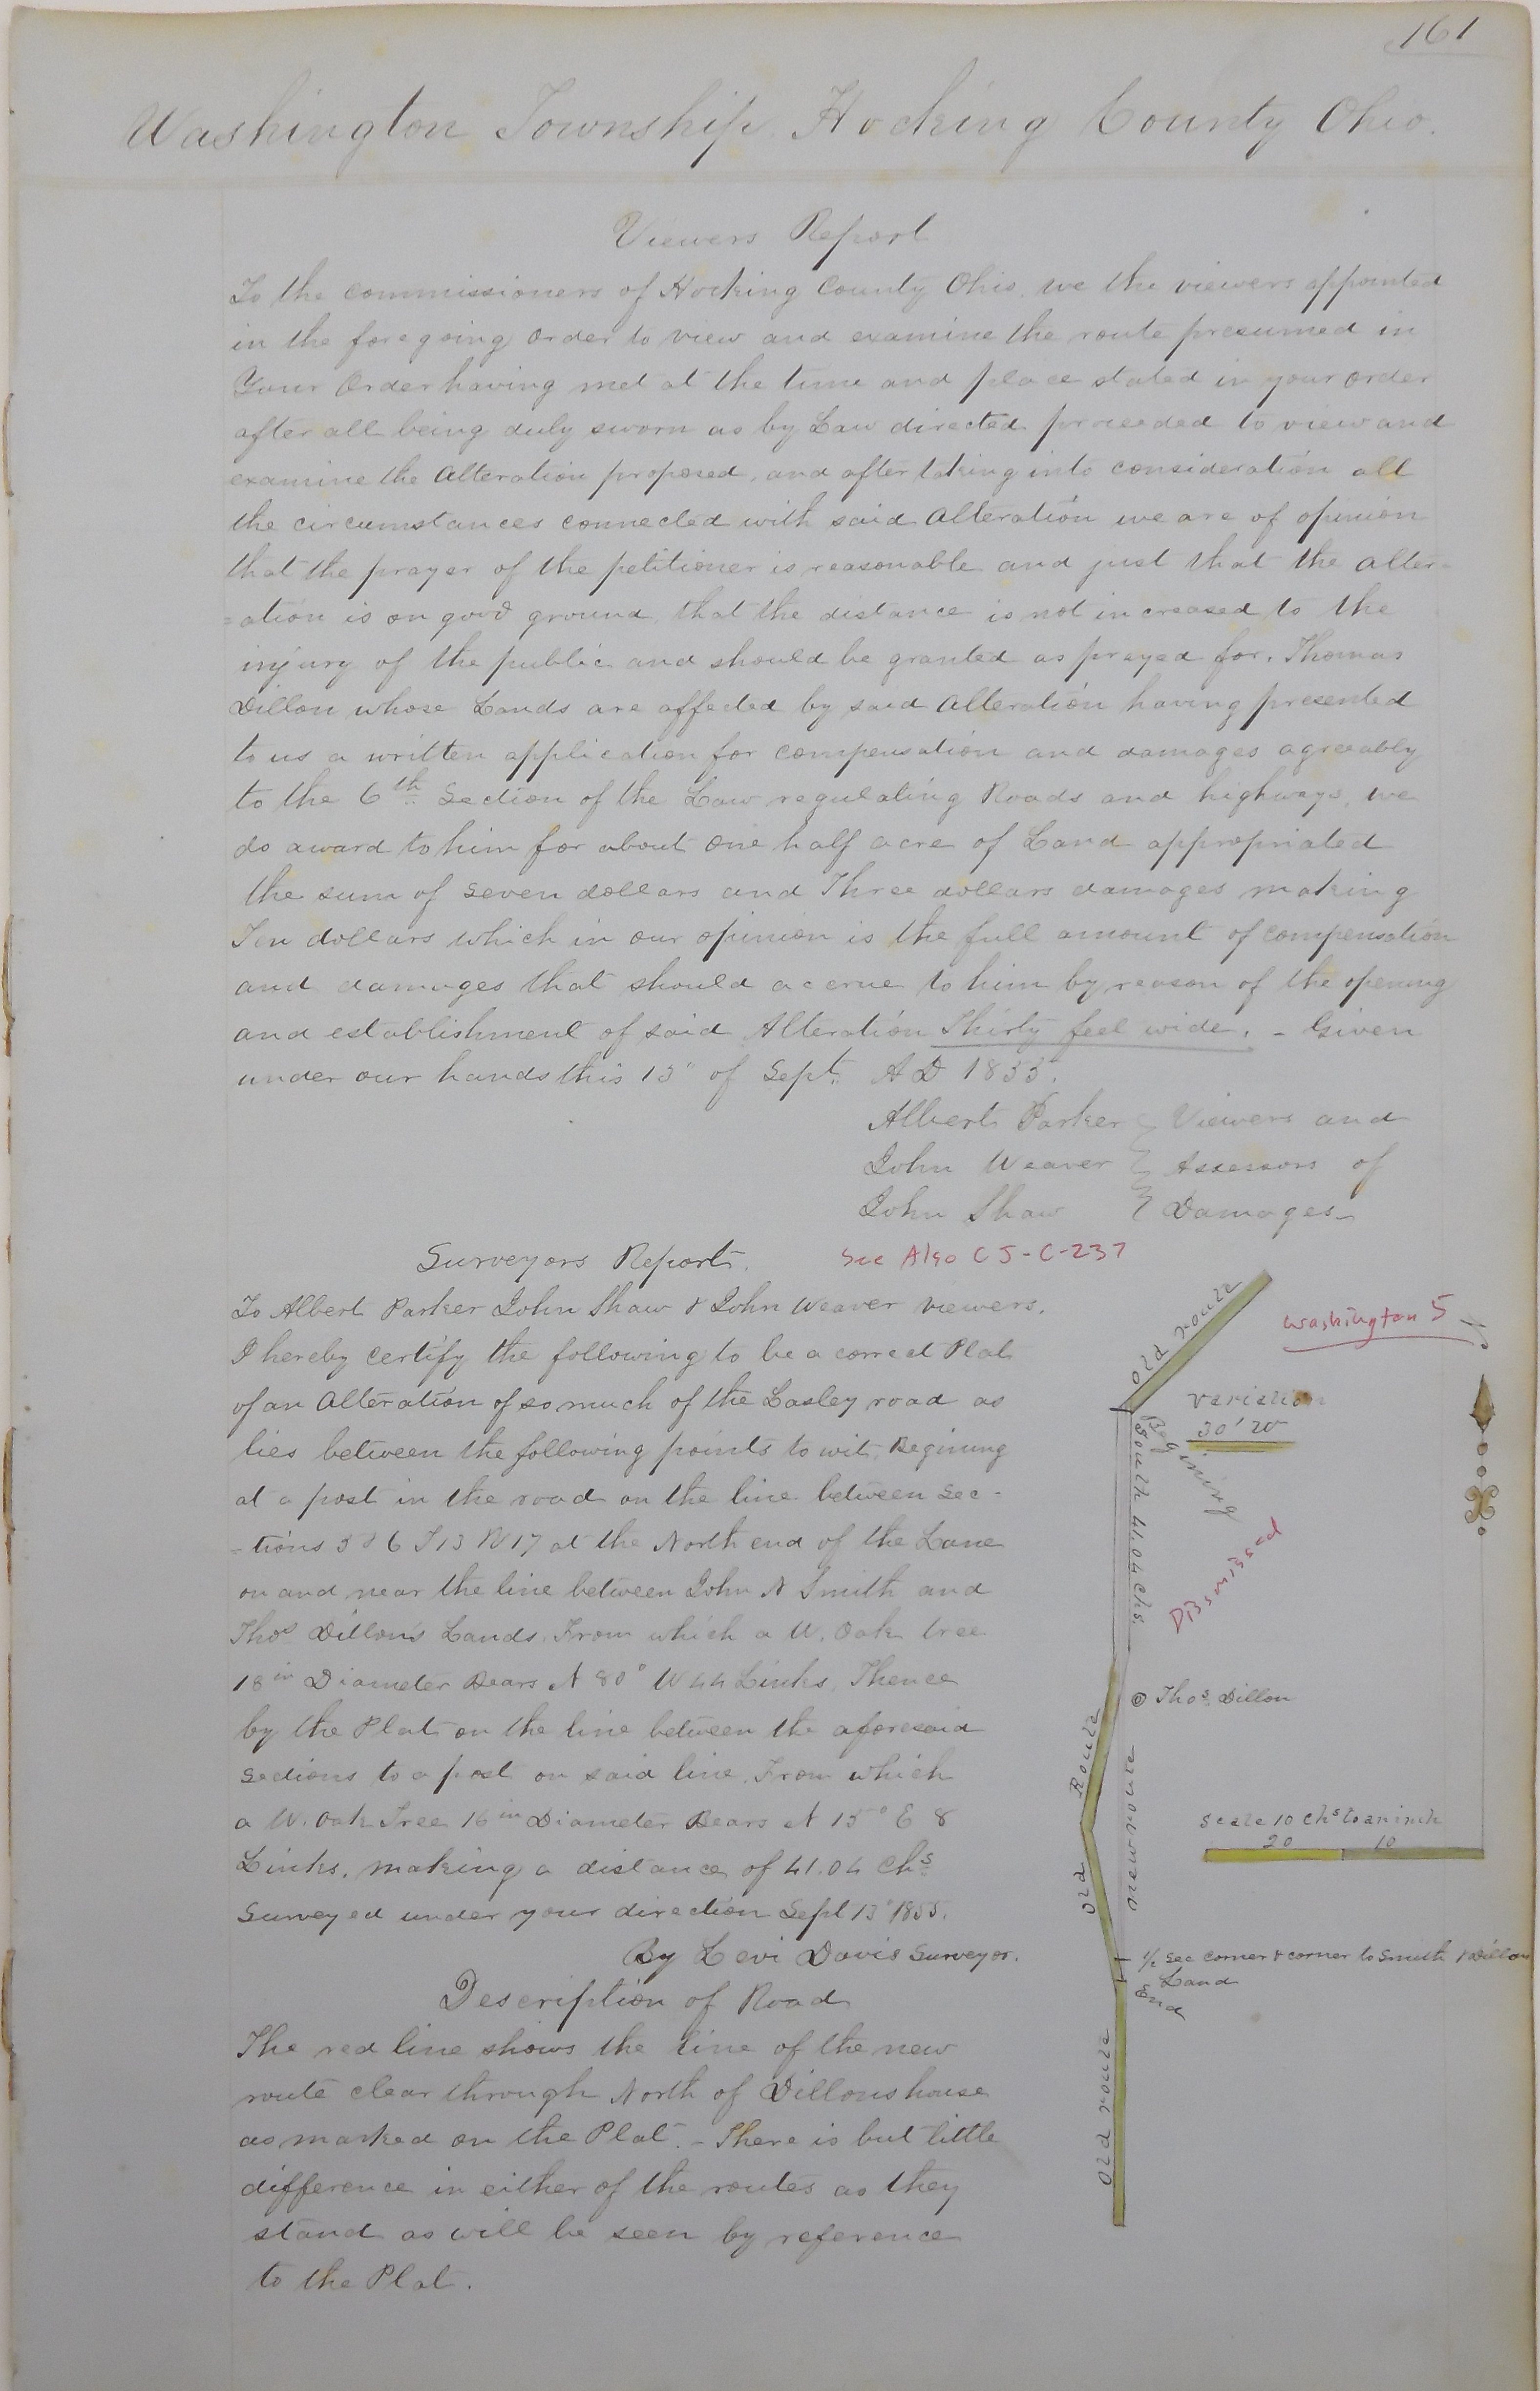 161
Washington Township Hocking County Ohio.
Viewers Report
To the commissioners of Hocking County Ohio. we the viewers appointed
in the foregoing order to view and examine the route presumed in
Your Order having met at the time and place stated in your order
after all being duly sworn as by Law directed proceeded to view and
examine the Alteration proposed, and after taking into consideration all
the circumstances connected with said Alteration we are of opinion
that the prayer of the petitioner is reasonable and just that the alter-
=ation is on good ground that the distance is not increased to the
injury of the public and should be granted as prayed for. Thomas
Dillon whose Lands are affected by said Alteration having presented
to us a written application for compensation and damages agreeably
to the 6th Section of the Law regulating Roads and highways, we
do award to him for about one half acre of Land appropriated
the sum of Seven dollars and Three dollars damages making
Ten dollars which in our opinion is the full amount of compensation
and damages that should accrue to him by reason of the opening
and establishment of said Alteration Thirty feet wide. - Given
under our hands this 13" of Sept. A D 1855.
Albert Parker } Viewers and
John Weaver } Assessors of
John Shaw } Damages
Surveyors Report.
See Also C J-C-237
To Albert Parker John Shaw & John Weaver viewers.
I hereby certify the following to be a correct Plat
of an Alteration of so much of the Lasley road as
lies between the following points to wit, Begining
at a post in the road on the line between Sec-
-tions 5 & 6 T13 R17 at the North end of the Lane
on and near the line between John N Smith and
Thos Dillons Lands. From which a W. Oak tree
18 in Diameter Bears N 80° W 44 Links, Thence
by the Plat on the line between the aforesaid
Sections to a post on said line. From which
a W. Oak Tree 16 in Diameter Bears N 15° E 8
Links. making a distance of 41.04 Chs
Surveyed under your direction Sept 13" 1855.
By Levi Davis Surveyor.
Description of Road
The red line shows the line of the new
route clear through North of Dillons house
as marked on the Plat. - There is but little
difference in either of the routes as they
stand as will be seen by reference
to the Plat.
Old route
Washington 5
Variation
30' 20
Begining
South 41.04 Chs.
Dismissed
Thos. Dillon
Old Route
new route
Scale 10 Chs to an inch
20 10
1/2 Sec corner & corner to Smith & Dillon
Land
End
Old route